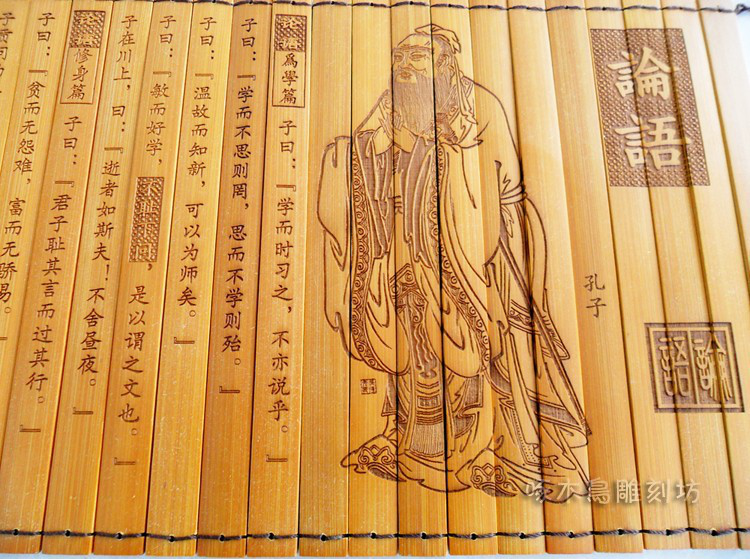 論語
論語
孔子
論語 爲學篇 子曰：『学而时习之，不亦说乎。』
子曰：『学而不思则罔，思而不学则殆。』
子曰：『温故而知新，可以为师矣。』
子曰：『敏而好学，不耻下问，是以谓之文也。』
子在川上，曰：『逝者如斯夫！不舍昼夜。』
修身篇 子曰：『君子耻其言而过其行。』
子曰：『贫而无怨难，富而无骄易。
啄木鳥雕刻坊